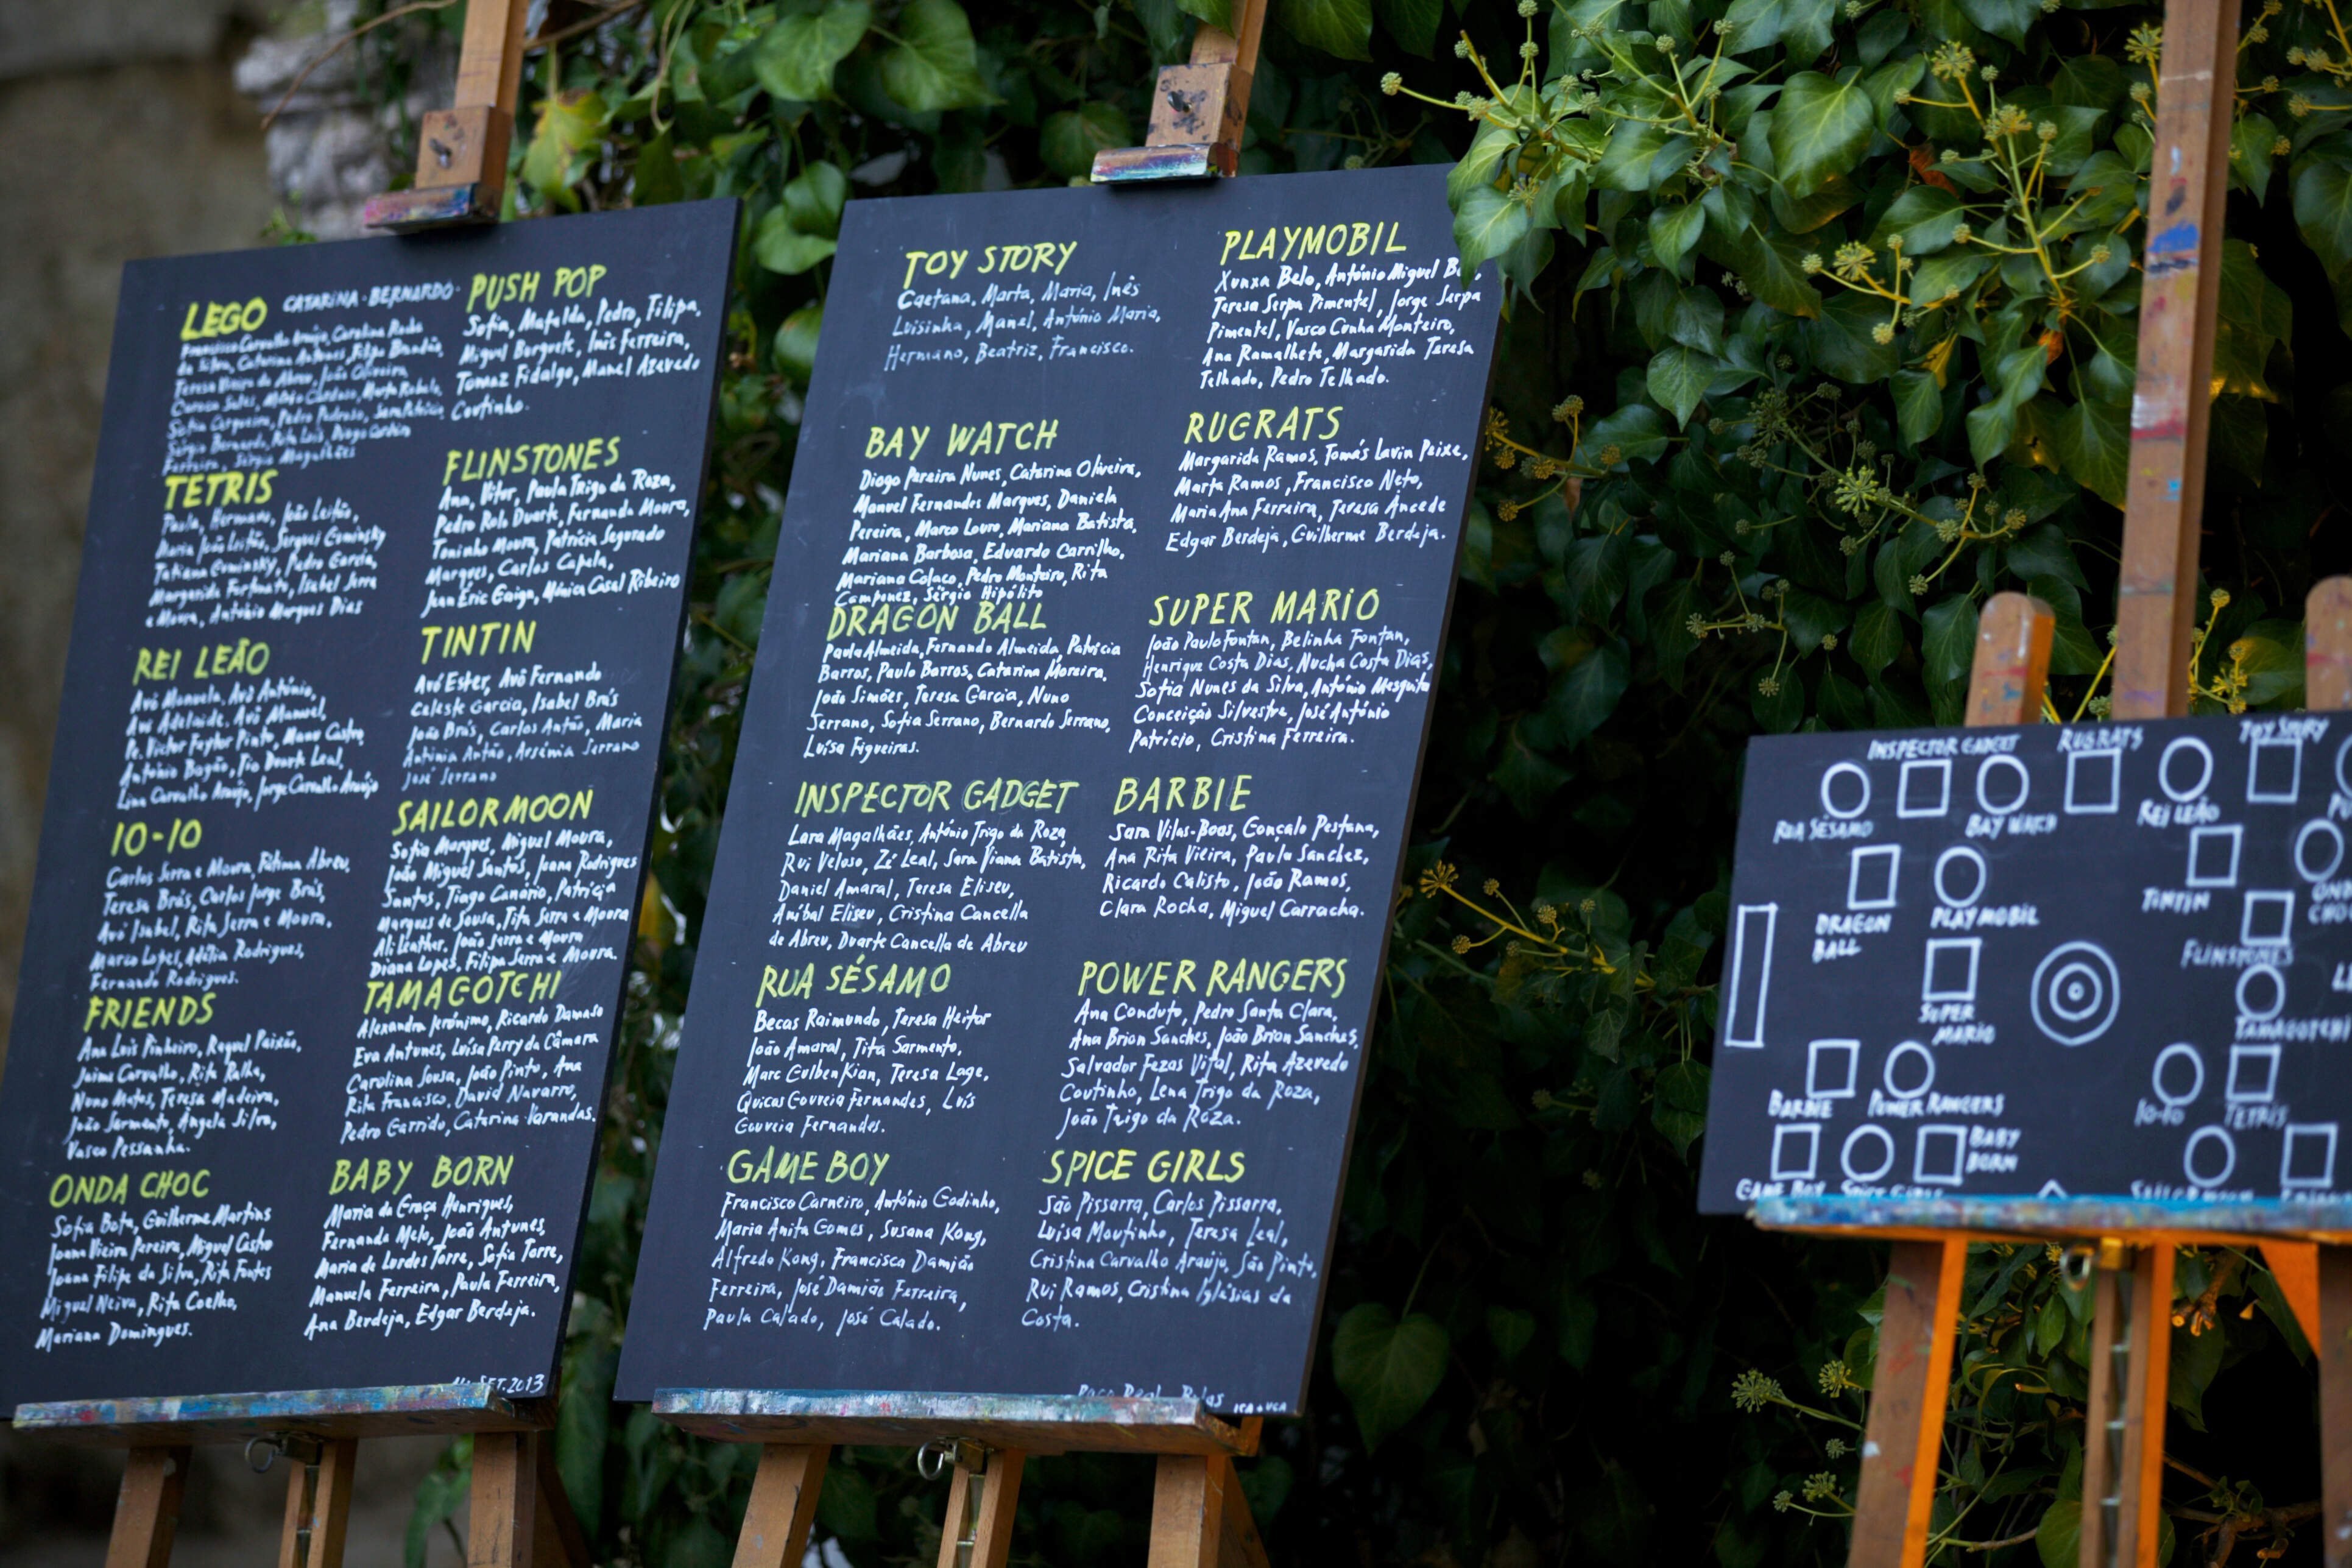 LEGO CATARINA·BERNARDO
Francisco Carvalho Araújo, Carolina Rocha
da Silva, Catarina Antunes, Filipe Brandão,
Teresa Vieira de Abreu, João Oliveira,
Sales, Cardoso, Marta
Sofia Cerqueira, Pedro Pedroso, Sara Patrício,
Sérgio Bernardo, Rita Luis, Diogo
Ferreira, Sérgio Magalhães
TETRIS
Paula, Hermano, João Leitão,
Maria João Leitão, Sergues Guminsky
Tatiana Guminsky, Pedro Garcia,
Margarida Fortunato, Isabel Serra
e Moura, António Marques Dias
REI LEÃO
Avó Manuela, Avô António,
Avó Adelaide, Avô Manuel,
Pe. Victor Feytor Pinto, Mano Castro,
António Bagão, Tio Duarte Leal,
Lina Carvalho Araújo, Jorge Carvalho Araújo
10-10
Carlos Serra e Moura, Fátima Abreu,
Teresa Brás, Carlos Jorge Brás,
Avó Isabel, Rita Serra e Moura,
Marco Lopes, Adélia Rodrigues,
Fernando Rodrigues.
FRIENDS
Ana Luis Pinheiro, Raquel Paixão,
Jaime Carvalho, Rita Ralha,
Nuno Matos, Teresa Madeira,
João Sarmento, Ângela Silva,
Vasco Pessanha.
ONDA CHOC
Sofia Bota, Guilherme Martins
Joana Vieira Pereira, Miguel Castro
Joana Filipe da Silva, Rita Fontes
Miguel Neiva, Rita Coelho,
Mariana Domingues.
PUSH POP
Sofia, Mafalda, Pedro, Filipa,
Miguel Borguete, Inês Ferreira,
Tomaz Fidalgo, Manel Azevedo
Coutinho.
FLINSTONES
Ana, Vitor, Paula Trigo da Roza,
Pedro Rolo Duarte, Fernanda Moura,
Toninho Moura, Patrícia Segurado
Marques, Carlos Capela,
Jean Eric Gaign, Mónica Casal Ribeiro
TINTIN
Avó Ester, Avô Fernando
Celeste Garcia, Isabel Brás
João Brás, Carlos Antão, Maria
Antónia Antão, Arsémia Serrano
José Serrano
SAILORMOON
Sofia Marques, Miguel Moura,
João Miguel Santos, Joana Rodrigues
Santos, Tiago Canário, Patrícia
Marques de Sousa, Tita Serra e Moura
Ali Leather, João Serra e Moura
Diana Lopes, Filipa Serra e Moura.
TAMAGOTCHI
Alexandra Jerónimo, Ricardo Damaso
Eva Antunes, Luísa Perry da Câmara
Carolina Sousa, João Pinto, Ana
Rita Francisco, David Navarro,
Pedro Garrido, Catarina Varandas.
BABY BORN
Maria da Graça Henriques,
Fernanda Melo, João Antunes,
Maria de Lurdes Torre, Sofia Torre,
Manuela Ferreira, Paula Ferreira,
Ana Berdeja, Edgar Berdeja.
SET.2013
TOY STORY
Caetana, Marta, Maria, Inês
Luisinha, Manel, António Maria,
Hermano, Beatriz, Francisco.
BAY WATCH
Diogo Pereira Nunes, Catarina Oliveira,
Manuel Fernandes Marques, Daniela
Pereira, Marco Louro, Mariana Batista,
Mariana Barbosa, Eduardo Carrilho,
Mariana Colaço, Pedro Monteiro, Rita
Camponez, Sérgio Hipólito
DRAGON BALL
Paula Almeida, Fernando Almeida, Patrícia
Barros, Paulo Barros, Catarina Moreira,
João Simões, Teresa Garcia, Nuno
Serrano, Sofia Serrano, Bernardo Serrano,
Luísa Figueiras.
INSPECTOR GADGET
Lara Magalhães, António Trigo da Roza,
Rui Veloso, Zé Leal, Sara Viana Batista,
Daniel Amaral, Teresa Eliseu,
Aníbal Eliseu, Cristina Cancella
de Abreu, Duarte Cancella de Abreu
RUA SÉSAMO
Becas Raimundo, Teresa Heitor
João Amaral, Tita Sarmento,
Marc Gulbenkian, Teresa Lage,
Quicas Gouveia Fernandes, Luís
Gouveia Fernandes.
GAME BOY
Francisco Carneiro, António Godinho,
Maria Anita Gomes, Susana Kong,
Alfredo Kong, Francisca Damião
Ferreira, José Damião Ferreira,
Paula Calado, José Calado.
PLAYMOBIL
Xunxa Belo, António Miguel
Teresa Serpa Pimentel, Jorge Serpa
Pimentel, Vasco Cunha Monteiro,
Ana Ramalhete, Margarida Teresa
Telhado, Pedro Telhado.
RUGRATS
Margarida Ramos, Tomás Lavin Peixe,
Marta Ramos, Francisco Neto,
Maria Ana Ferreira, Teresa Ancede
Edgar Berdeja, Guilherme Berdeja.
SUPER MARIO
João Paulo Fontan, Belinha Fontan,
Henrique Costa Dias, Nucha Costa Dias,
Sofia Nunes da Silva, António Mesquita
Conceição Silvestre, José António
Patrício, Cristina Ferreira.
BARBIE
Sara Vilas-Boas, Gonçalo Pestana,
Ana Rita Vieira, Paula Sanchez,
Ricardo Calisto, João Ramos,
Clara Rocha, Miguel Carracha.
POWER RANGERS
Ana Conduto, Pedro Santa Clara,
Ana Brion Sanches, João Brion Sanches,
Salvador Fezas Vital, Rita Azevedo
Coutinho, Lena Trigo da Roza,
João Trigo da Roza.
SPICE GIRLS
São Pissarra, Carlos Pissarra,
Luísa Moutinho, Teresa Leal,
Cristina Carvalho Araújo, São Pinto,
Rui Ramos, Cristina Iglésias da
Costa.
INSPECTOR GADGET RUGRATS TOY STORY
RUA SÉSAMO BAY WATCH REI LEÃO
DRAGON BALL PLAYMOBIL TINTIN
FLINSTONES
SUPER MARIO TAMAGOTCHI
BARBIE POWER RANGERS 10-10 TETRIS
BABY BORN
GAME BOY SPICE GIRLS